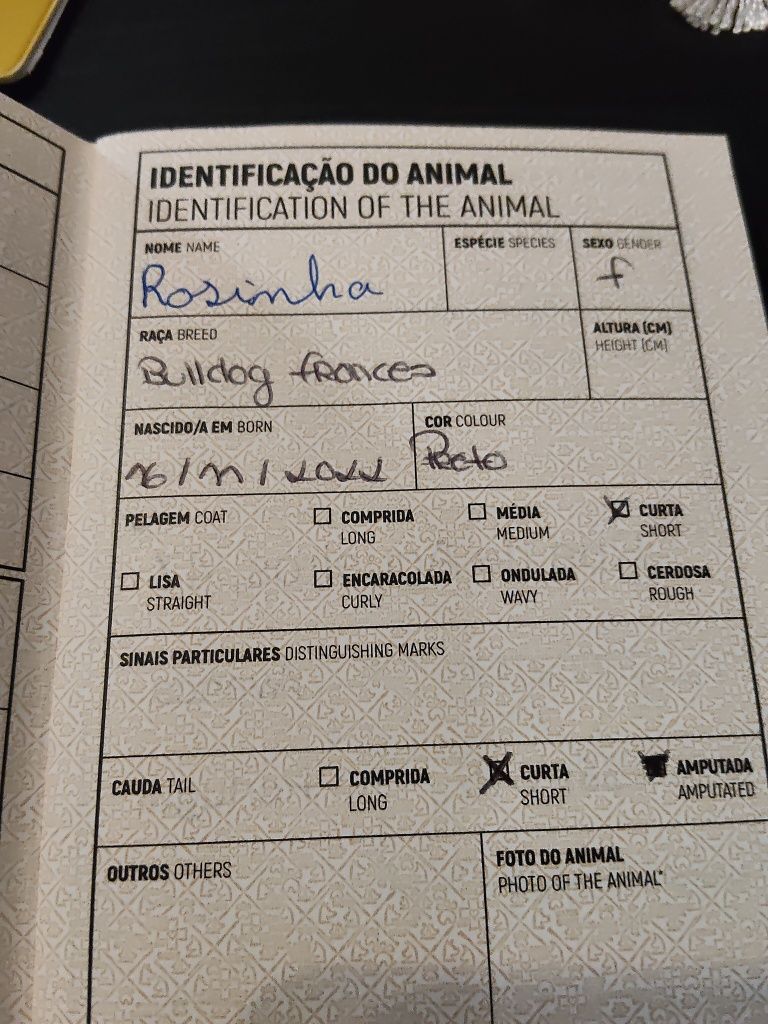 IDENTIFICAÇÃO DO ANIMAL
IDENTIFICATION OF THE ANIMAL
NOME NAME
ESPÉCIE SPECIES
SEXO GENDER
Rosinha
f
RAÇA BREED
ALTURA (CM)
HEIGHT (CM)
Bulldog frances
NASCIDO/A EM BORN
COR COLOUR
16/11/2022
Preto
PELAGEM COAT
COMPRIDA
LONG
MÉDIA
MEDIUM
CURTA
SHORT
LISA
STRAIGHT
ENCARACOLADA
CURLY
ONDULADA
WAVY
CERDOSA
ROUGH
SINAIS PARTICULARES DISTINGUISHING MARKS
CAUDA TAIL
COMPRIDA
LONG
CURTA
SHORT
AMPUTADA
AMPUTATED
OUTROS OTHERS
FOTO DO ANIMAL
PHOTO OF THE ANIMAL*